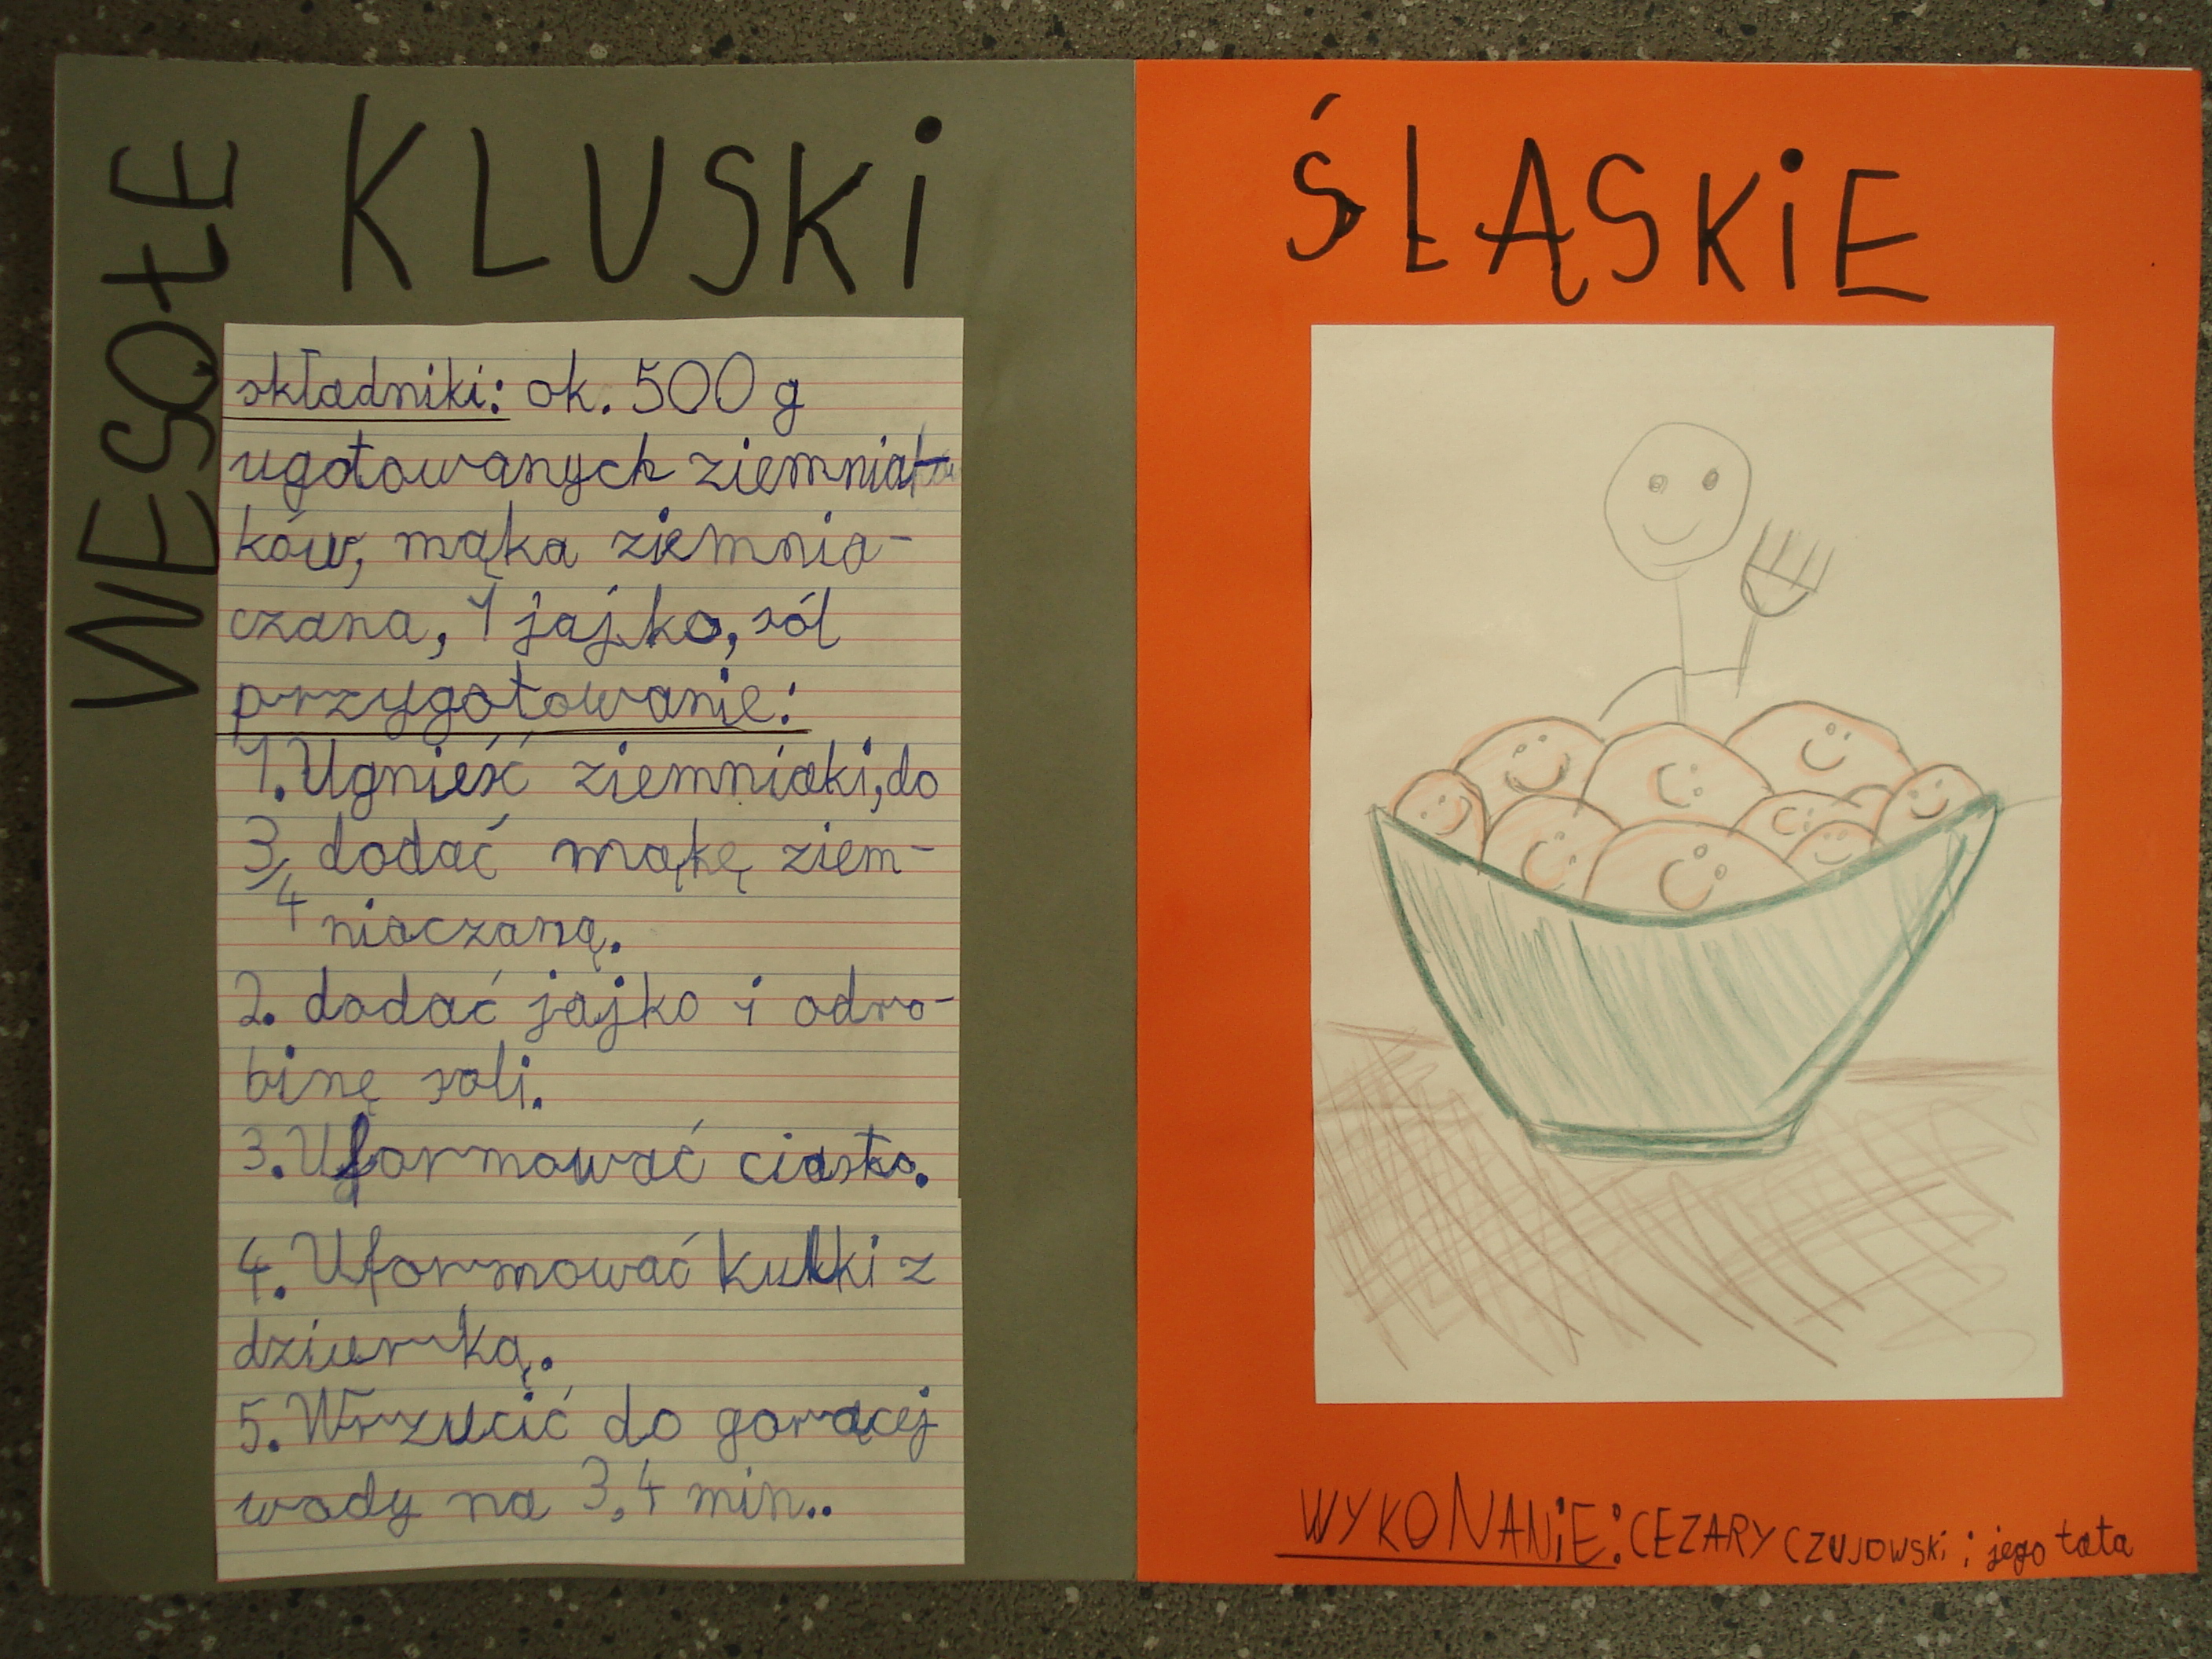 WESOŁE
KLUSKI
składniki: ok. 500 g
ugotowanych ziemnia-
ków, mąka ziemnia-
czana, 1 jajko, sól
przygotowanie:
1. Ugnieść ziemniaki, do
3/4 dodać mąkę ziem-
niaczaną.
2. dodać jajko i odro-
binę soli.
3. Uformować ciasto.
4. Uformować kulki z
dziurką.
5. Wrzucić do gorącej
wody na 3,4 min..
ŚLĄSKIE
WYKONANIE: CEZARY CZUJOWSKI i jego tata